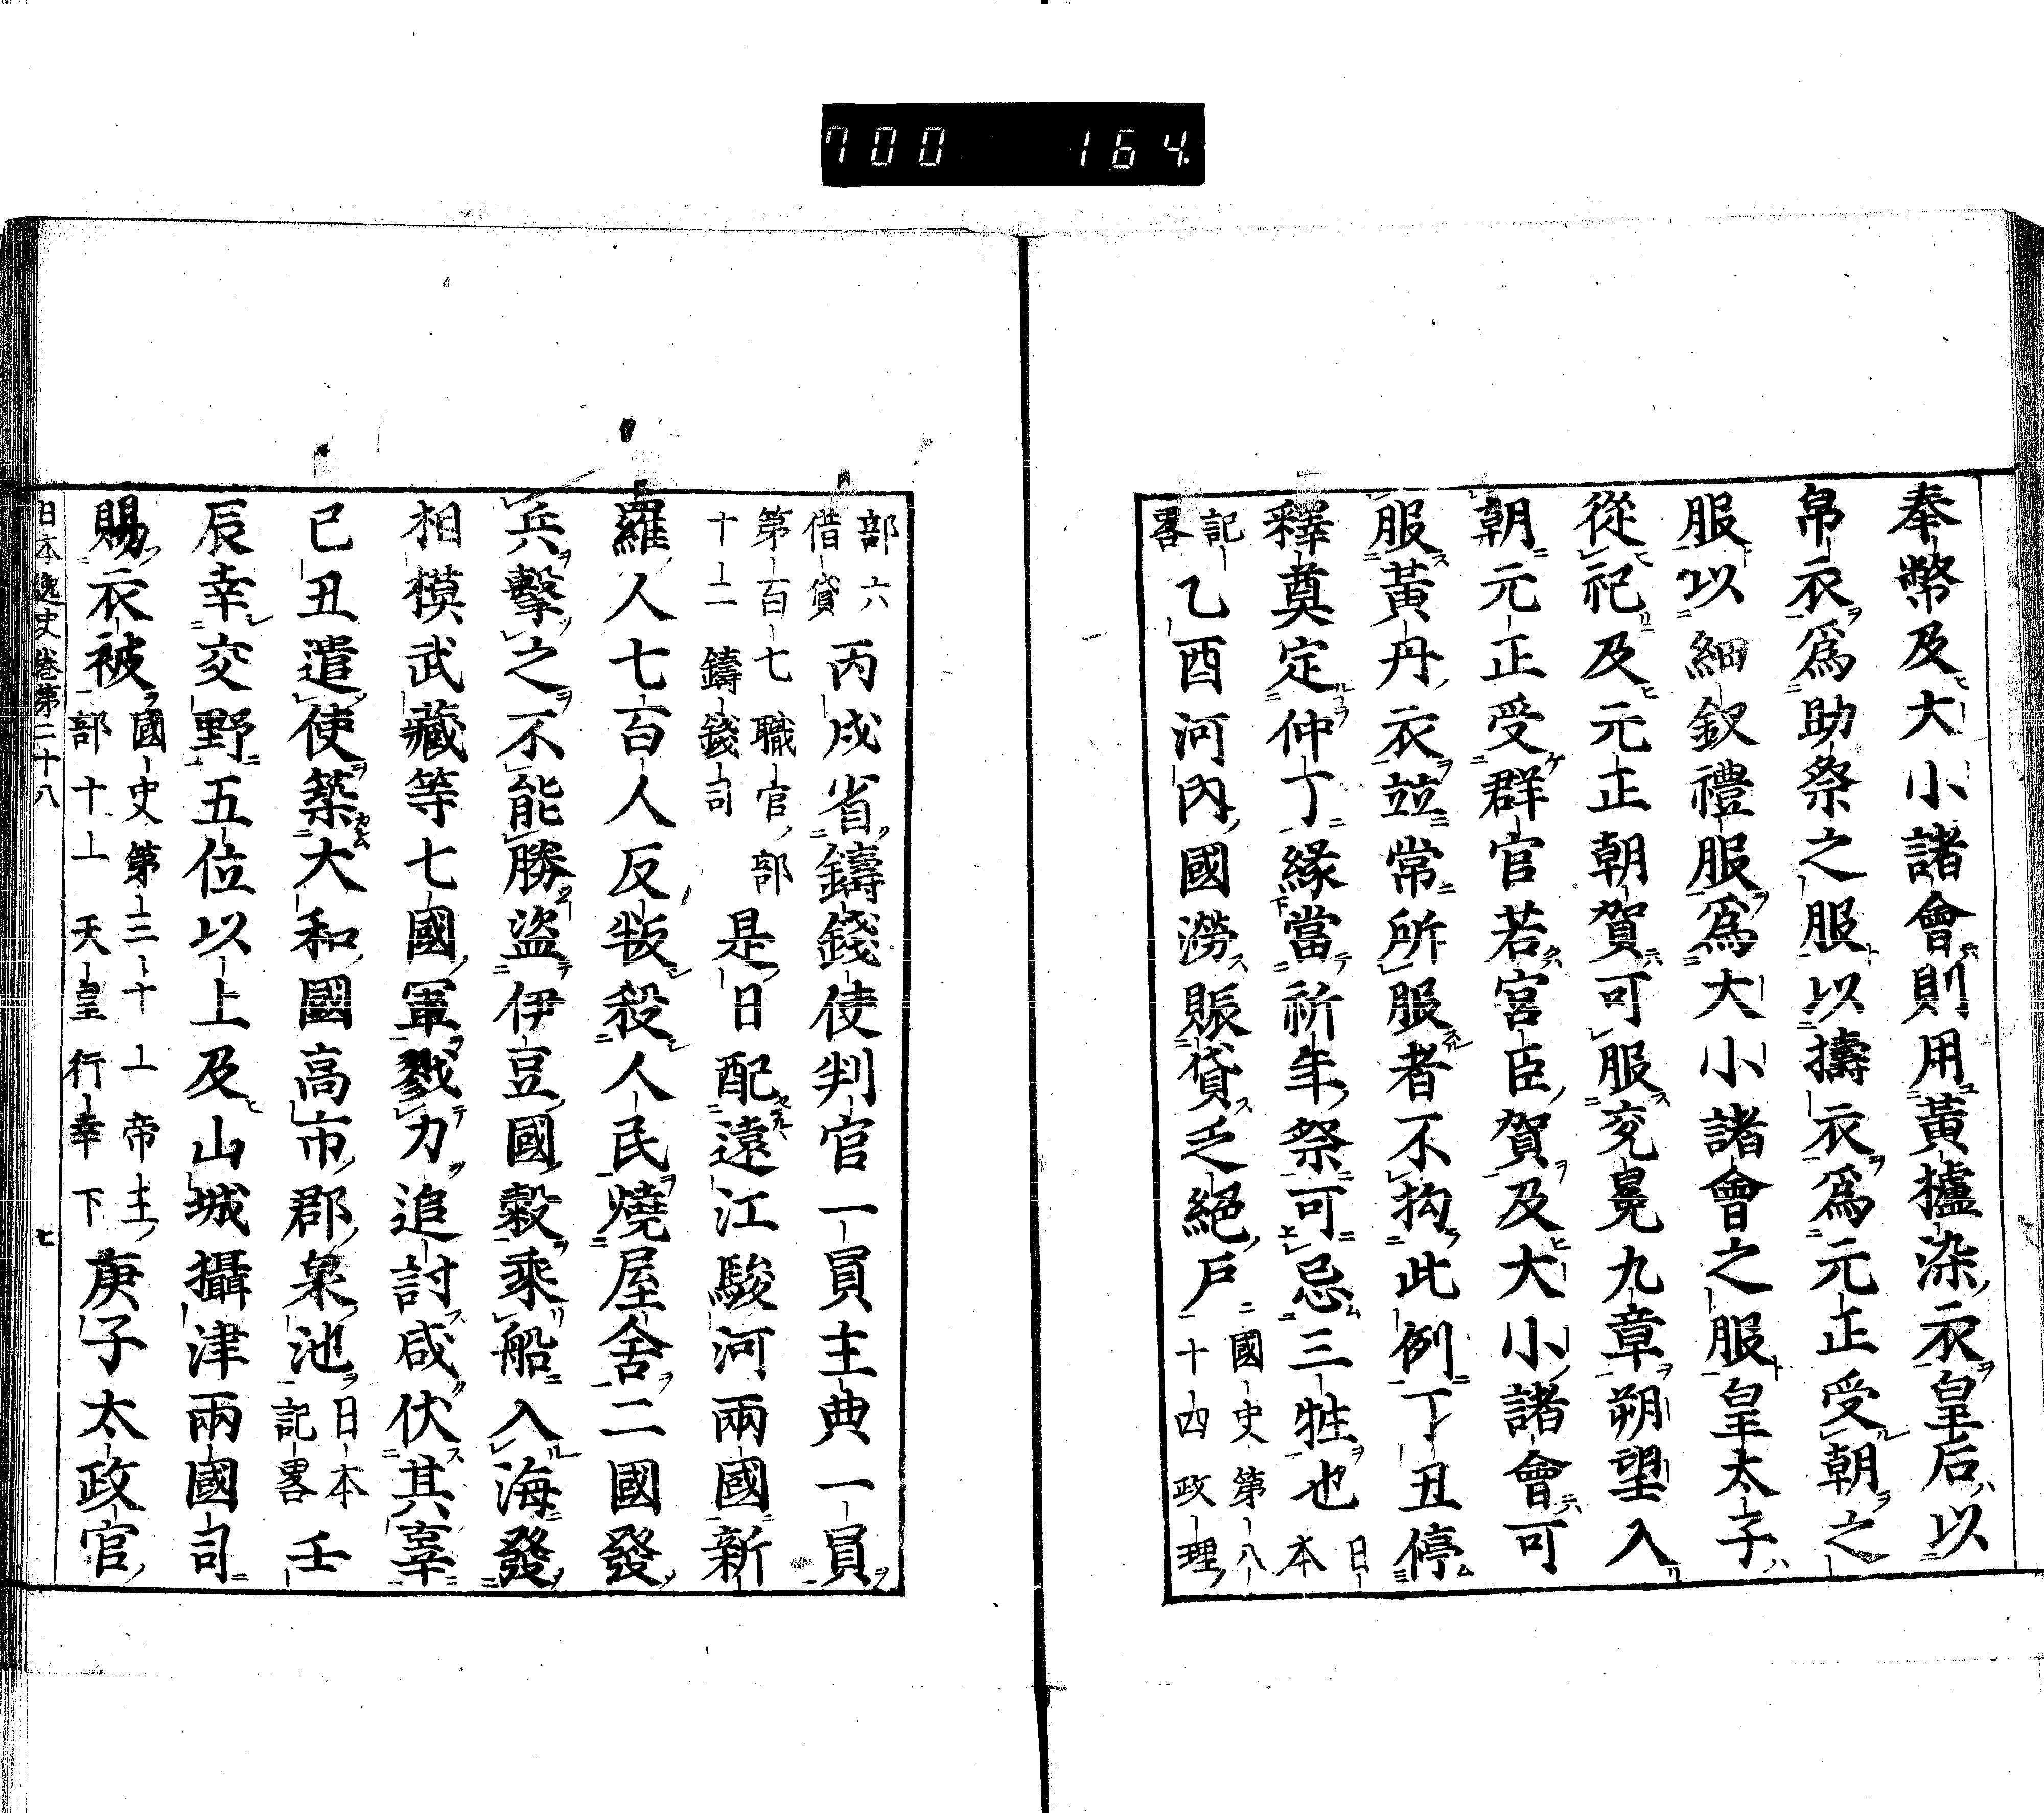 700 164
奉幣及大小諸會則用黃櫨染衣皇后以
帛衣爲助祭之服以擣衣爲元正受朝之
服以細釵禮服爲大小諸會之服皇太子
從祀及元正朝賀可服衮冕九章朔望入
朝元正受群官若宮臣賀及大小諸會可
服黃丹衣並常所服者不拘此例丁丑停
釋奠定仲丁緣當祈年祭可忌三牲也日本
記畧乙酉河內國澇賑貸乏絕戶國史第八十四政理
部六借貸丙戌省鑄錢使判官一員主典一員
第百七職官部十二鑄錢司是日配遠江駿河兩國新
羅人七百人反叛殺人民燒屋舍二國發
兵擊之不能勝盜伊豆國穀乘船入海發
相模武藏等七國軍戮力追討咸伏其辜
己丑遣使築大和國高市郡泉池日本記畧壬
辰幸交野五位以上及山城攝津兩國司
賜衣被國史第三十一帝主部十一天皇行幸下庚子太政官
日本逸史卷第二十八 七